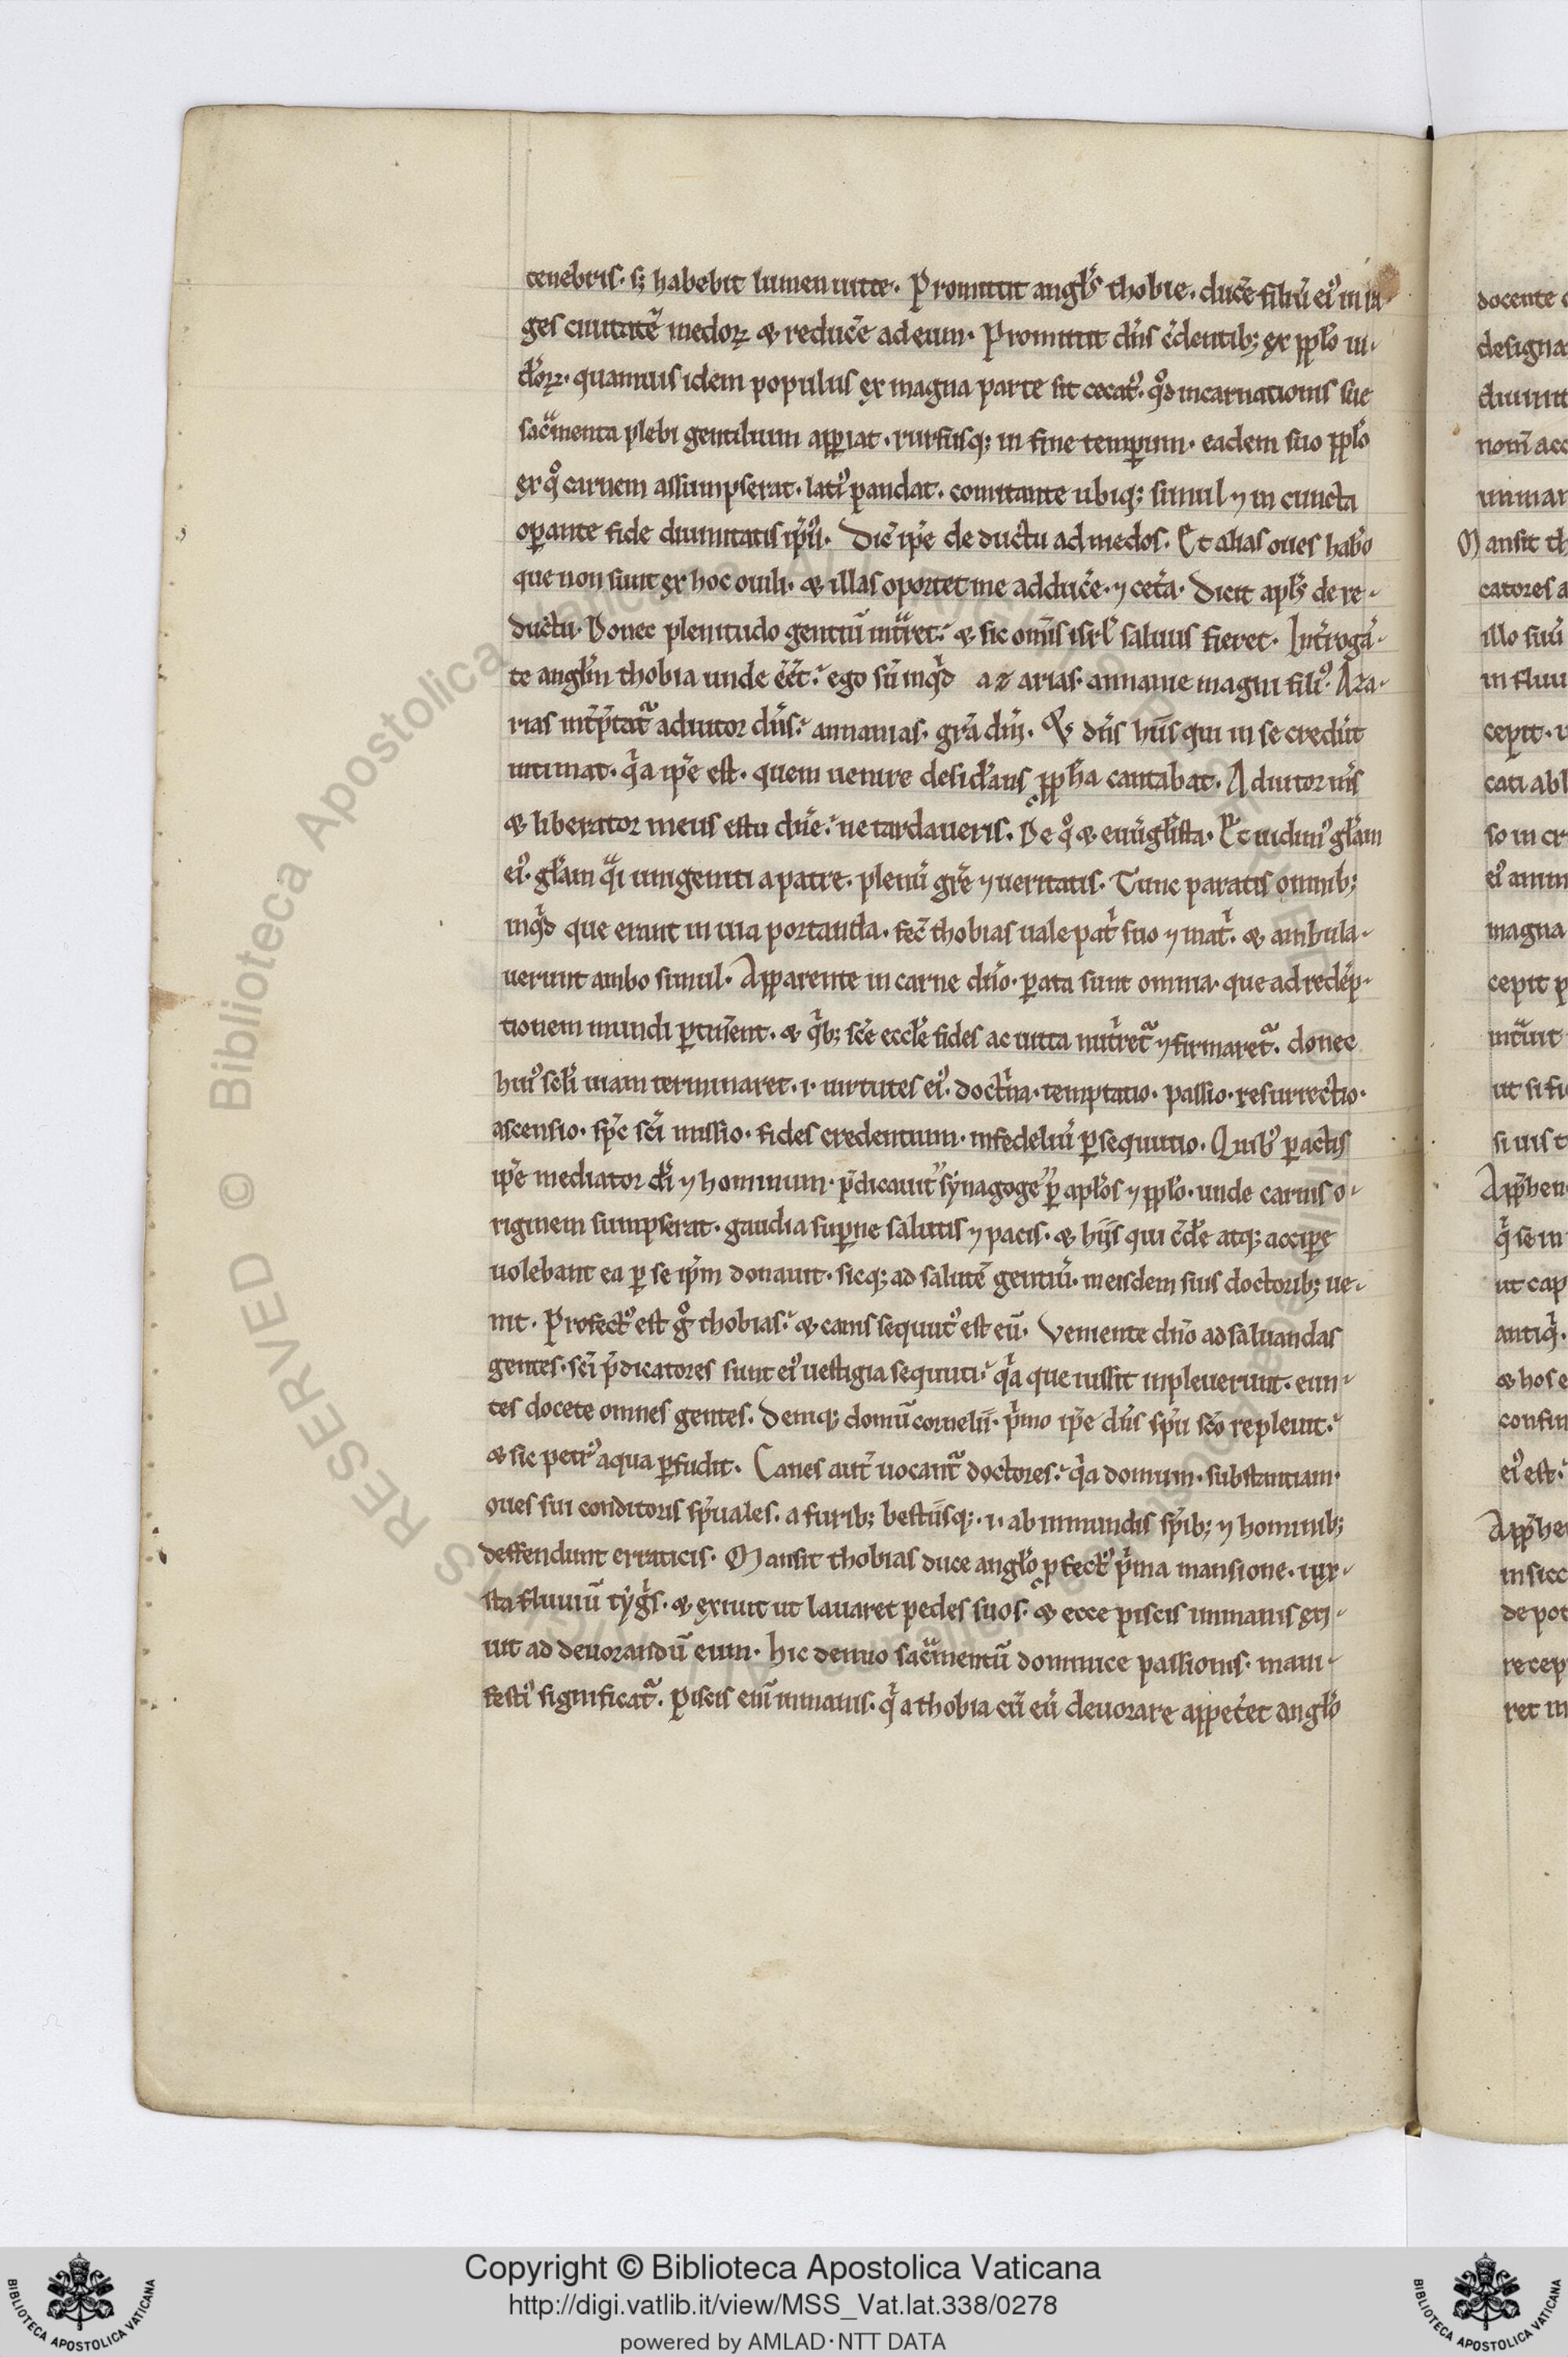 tenebris. sꝫ habebit lumen uite. Promittit angl̓s thobie. ducēe filiū eiꝰ in ra-
ges ciuitatē medoꝝ & reducēe ad eum. Promittit dn̄s c̄dentibꝫ ex pp̄lo iu-
d̓oꝝ. quamuis idem populus ex magna parte sit cecatꝰ. qd̓ incarnationis sue
sac̄menta plebi gentilium ap̱iat. rursusqꝫ in fine temp̱um. eadem suo pp̄lo
ex qͦ carnem assumpserat. latiꝰ pandat. comitante ubiqꝫ simul ⁊ in cuncta
op̱ante fide diuinitatis ip̄iꝰ. Dic̄ ip̄e de ductu ad medos. Et alias oues habeo
que non sunt ex hoc ouili. & illas oportet me adduc̄e. ⁊ cet̄a. Dicit apl̓s de re-
ductu. Donec plenitudo gentiū int̄ret. & sic om̄is isrl̓ saluus fieret. Int̄roga-
te angl̓m thobia unde eēt. ego sū inqd̓ azarias. annanie magni filiꝰ. Aza-
rias int̄p̄tat᷑ adiutor dn̄s. annanias. gr̄a dn̄i. & dn̄s hiis qui in se credūt
intimat. qͥa ip̄e est. quem uenire desid̓ans pp̄h̄a cantabat. Adiutor m̄s
& liberator meus esto dn̄e. ne tardaueris. De qͦ & euūgl̓ista. Et uidimꝰ gl̓am
eiꝰ. gl̓am qͣi unigeniti a patre. plenū gr̄e ⁊ ueritatis. Tunc paratis omnibꝫ
inqd̓ que erant in uia portanda. fec̄ thobias uale pat̄ suo ⁊ mat̄. & ambula-
uerunt ambo simul. Apparente in carne dn̄o. p̱ata sunt omnia. que ad redēp-
tionem mundi p̱tin̄ent. & qͥbꝫ sc̄e eccl̓e fides ac uita nut̄ret᷑ ⁊ firmaret᷑. donec
huiꝰ scl̓i uiam terminaret. .i. uirtutes eiꝰ. doct̄na. temptatio. passio. resurrectio.
ascensio. sp̄c sc̄i missio. fides credentium. infedeliū p̱sequutio. Quibꝰ p̱actis
ip̄e mediator d̓i ⁊ hominum. p̄dicauit synagoge p̱ apl̓os ⁊ pp̄lo. unde carnis o-
riginem sumpserat. gaudia sup̱ne salutis ⁊ pacis. & hijs qui c̄d̓e atqꝫ accip̱e
uolebant ea p̱ se ip̄m donauit. sicqꝫ ad salutē gentiū. in eisdem suis doctoribꝫ ue-
nit. Profectꝰ est gͦ thobias. & canis sequutꝰ est eū. Veniente dn̄o ad saluandas
gentes. sc̄i p̄dicatores sunt eiꝰ uestigia sequuti. qͥa que iussit inpleuerunt. eun-
tes docete omnes gentes. Deniqꝫ domū cornelii. p̄mo ip̄e dn̄s sp̄u sc̄o repleuit.
& sic petrꝰ aqua p̱fudit. Canes aut̄ uocant᷑ doctores. qͥa domum. substantiam.
oues sui conditoris sp̄uales. a furibꝫ bestiisqꝫ. .i. ab inmundis sp̄ibꝫ ⁊ hominibꝫ
deffendunt erraticis. Mansit thobias duce angl̓o p̱fectꝰ p̄ma mansione. iux-
sta fluuiū tygͥs. & exiuit ut lauaret pedes suos. & ecce piscis inmanis exi-
uit ad deuorandū eum. Hic denuo sac̄mentū dominice passionis. mani-
festiꝰ significat᷑. Piscis eni᷑ inmanis. qͥ a thobia cū eū deuorare appet̄et angl̓o
docente
designa
Mansit th
catores a
illo suū
in fluu
cepit.
cati abl
so in cr
magna
cepit p
ut si fi
si uis t
ut cap
& hos e
de pot
recep
ret in
Copyright © Biblioteca Apostolica Vaticana
http://digi.vatlib.it/view/MSS_Vat.lat.338/0278
powered by AMLAD·NTT DATA
BIBLIOTECA APOSTOLICA VATICANA
BIBLIOTECA APOSTOLICA VATICANA